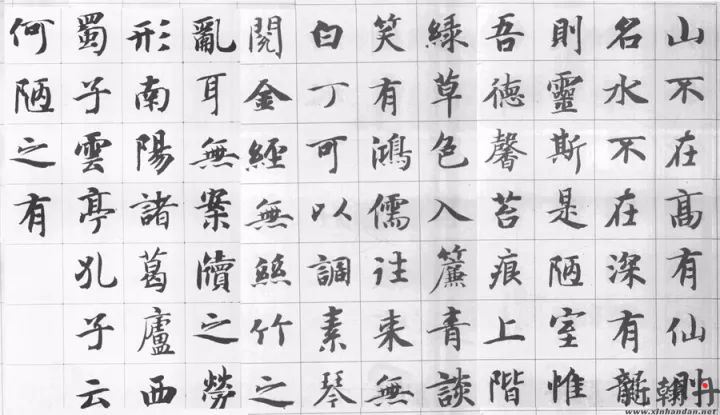 山不在高有仙則
名水不在深有龍
則靈斯是陋室惟
吾德馨苔痕上階
綠草色入簾青談
笑有鴻儒往來無
白丁可以調素琴
閱金經無絲竹之
亂耳無案牘之勞
形南陽諸葛廬西
蜀子雲亭孔子云
何陋之有
www.xinhandan.net